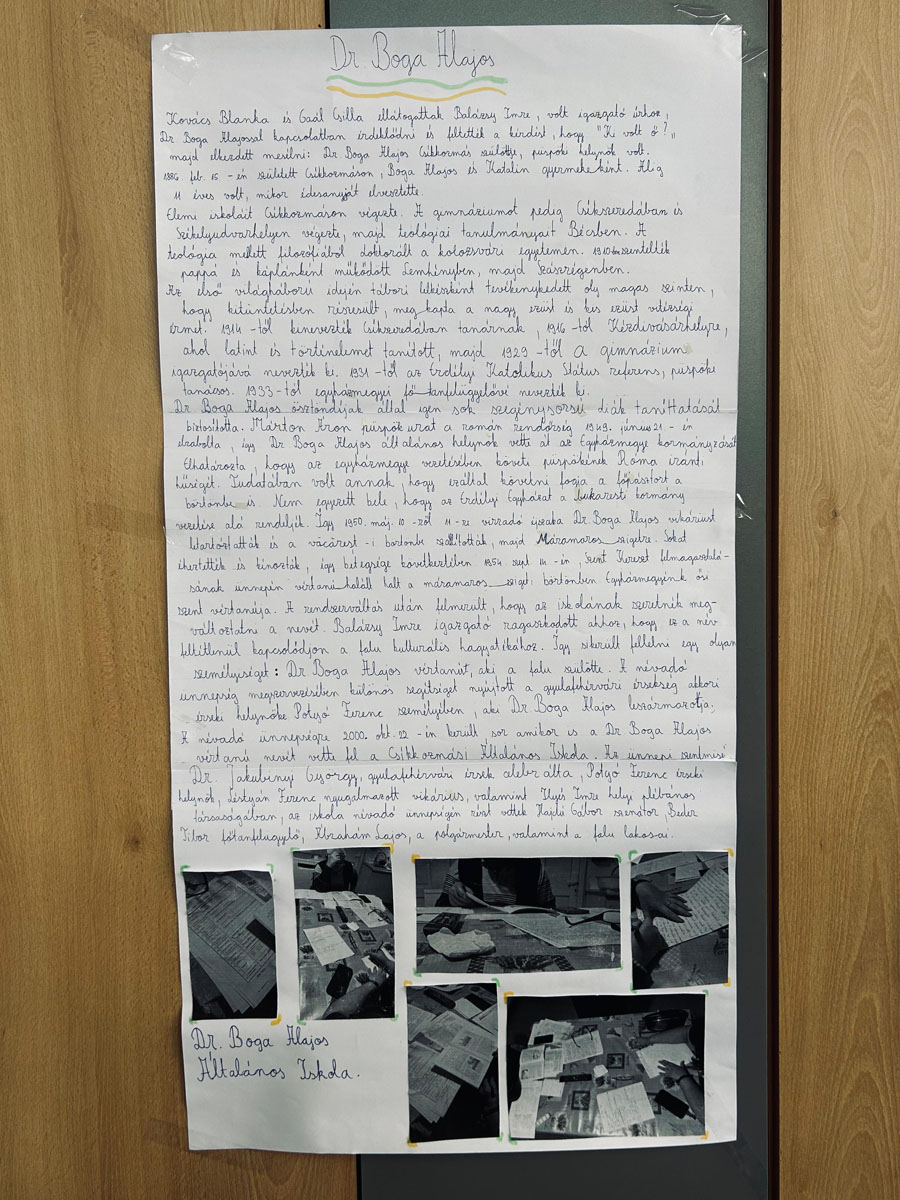 Dr. Boga Alajos
Kovács Blanka és Gaál Csilla ellátogattak Balázsy Imre, volt igazgató úrhoz,
Dr Boga Alajossal kapcsolatban érdeklődni és feltették a kérdést, hogy "Ki volt ő?"
majd elkezdett mesélni: Dr Boga Alajos Csíkkozmás szülötte, püspöki helynök volt.
1886 feb. 15 -én született Csíkkozmáson, Boga Alajos és Katalin gyermekeként. Alig
11 éves volt, mikor édesanyját elvesztette.
Elemi iskoláit Csíkkozmáson végezte. A gimnáziumot pedig Csíkszeredában és
Székelyudvarhelyen végezte, majd teológiai tanulmányait Bécsben. A
teológia mellett filozófiából doktorált a kolozsvári egyetemen. 1910-ben szentelték
pappá és káplánként működött Lemhényben, majd Szászrégenben.
Az első világháború idején tábori lelkészként tevékenykedett oly magas szinten,
hogy kitüntetésben részesült, megkapta a nagy ezüst és kis ezüst vitézségi
érmet. 1914 -től kinevezték Csíkszeredában tanárnak, 1916 -tól Kézdivásárhelyre,
ahol latint és történelmet tanított, majd 1929 -től a gimnázium
igazgatójává nevezték ki. 1931 -től az Erdélyi Katolikus Státus referens, püspöki
tanácsos. 1933 -tól egyházmegyei fő tanfelügyelővé nevezték ki.
Dr. Boga Alajos ösztöndíjak által igen sok szegénysorsú diák taníttatását
biztosította. Márton Áron püspök urat a román rendőrség 1949. június 21 - én
elrabolta, így Dr Boga Alajos általános helynök vette át az Egyházmegye kormányzását
Elhatározta, hogy az egyházmegye vezetésében követi püspökének Róma iránti
hűségét. Tudatában volt annak, hogy ezáltal követni fogja a főpásztort a
börtönbe is. Nem egyezett bele, hogy az Erdélyi Egyházat a bukaresti kormány
vezetése alá rendeljék. Így 1950. máj. 10 -ről 11 -re virradó éjszaka Dr Boga Alajos vikáriust
letartóztatták és a văcărest -i börtönbe szállították, majd Máramaros szigetre. Sokat
éheztették és kínozták, így betegsége következtében 1954 szept 14 -én, Szent Kereszt felmagasztalá-
sának ünnepén vértanú halált halt a máramaros szigeti börtönben Egyházmegyénk ősi
szent vértanúja. A rendszerváltás után felmerült, hogy az iskolának szeretnék meg-
változtatni a nevét. Balázsy Imre igazgató ragaszkodott ahhoz, hogy ez a név
feltétlenül kapcsolódjon a falu kulturális hagyatékához. Így sikerült fellelni egy olyan
személyiséget: Dr Boga Alajos vértanút, aki a falu szülötte. A névadó
ünnepség megszervezésében különös segítséget nyújtott a gyulafehérvári érsekség akkori
érseki helynöke Potyó Ferenc személyében, aki Dr. Boga Alajos leszármazottja.
A névadó ünnepségre 2000. okt. 22 -én került sor amikor is a Dr Boga Alajos
vértanú nevét vette fel a Csíkkozmási Általános Iskola. Az ünnepi szentmisét
Dr. Jakubinyi György, gyulafehérvári érsek celebrálta, Potyó Ferenc érseki
helynök, Lestyán Ferenc nyugalmazott vikárius, valamint Ilyés Imre helyi plébános
társaságában, az iskola névadó ünnepségén részt vettek Hajdú Gábor szenátor, Beder
Tibor főtanfelügyelő, Ábrahám Lajos, a polgármester, valamint a falu lakosai.
Dr. Boga Alajos
Általános Iskola.